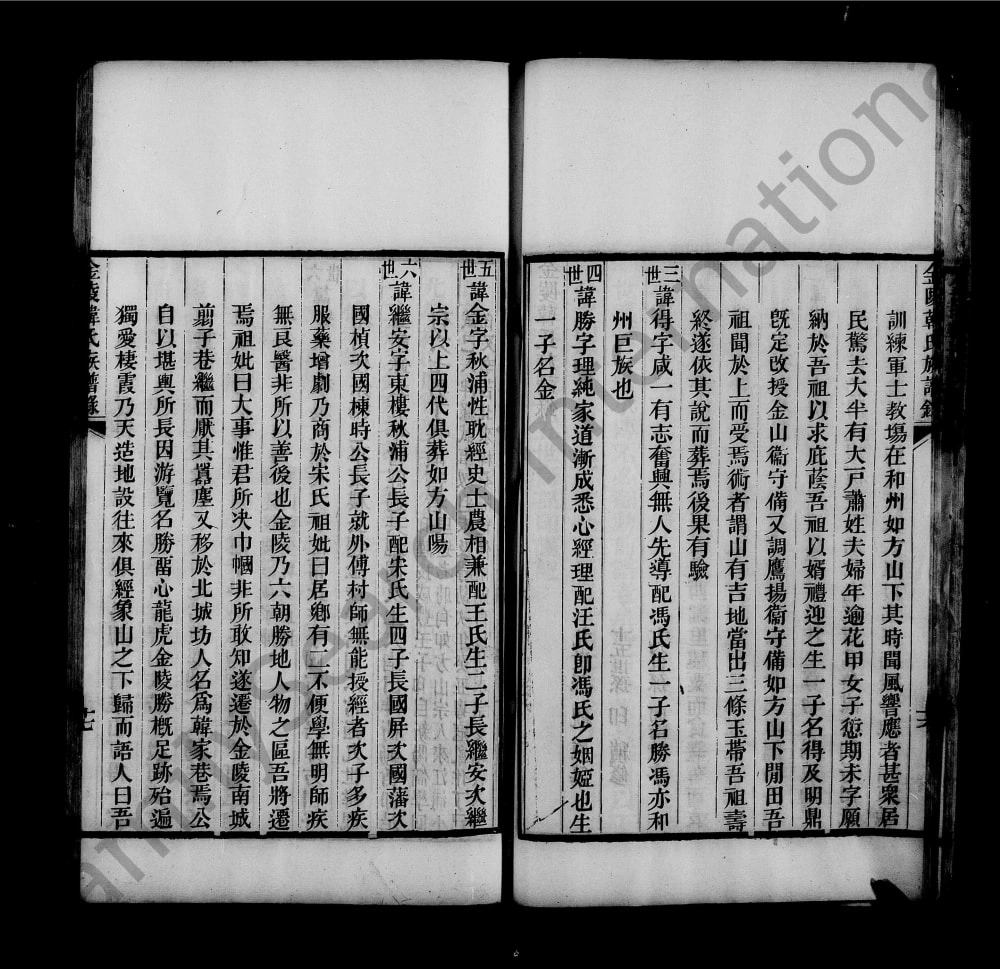 金陵韓氏族譜錄
訓練軍士教場在和州如方山下其時聞風響應者甚衆居
民驚去大半有大戸蕭姓夫婦年逾花甲女子愆期未字願
納於吾祖以求庇蔭吾祖以婿禮迎之生一子名得及明鼎
旣定改授金山衞守備又調鷹揚衞守備如方山下閒田吾
祖聞於上而受焉術者謂山有吉地當出三條玉帶吾祖壽
終遂依其說而葬焉後果有驗
三世諱得字咸一有志奮興無人先導配馮氏生一子名勝馮亦和
州巨族也
四世諱勝字理純家道漸成悉心經理配汪氏卽馮氏之姻婭也生
一子名金
五世諱金字秋浦性耽經史士農相兼配王氏生二子長繼安次繼
宗以上四代俱葬如方山陽
六世諱繼安字東樓秋浦公長子配宋氏生四子長國屏次國藩次
國楨次國棟時公長子就外傅村師無能授經者次子多疾
服藥增劇乃商於宋氏祖妣曰居鄉有二不便學無明師疾
無良醫非所以善後也金陵乃六朝勝地人物之區吾將遷
焉祖妣曰大事惟君所决巾幗非所敢知遂遷於金陵南城
剪子巷繼而厭其囂塵又移於北城坊人名爲韓家巷焉公
自以堪輿所長因游覽名勝畱心龍虎金陵勝槪足跡殆遍
獨愛棲霞乃天造地設往來俱經象山之下歸而語人曰吾
金陵韓氏族譜錄
十七
FamilySearch International